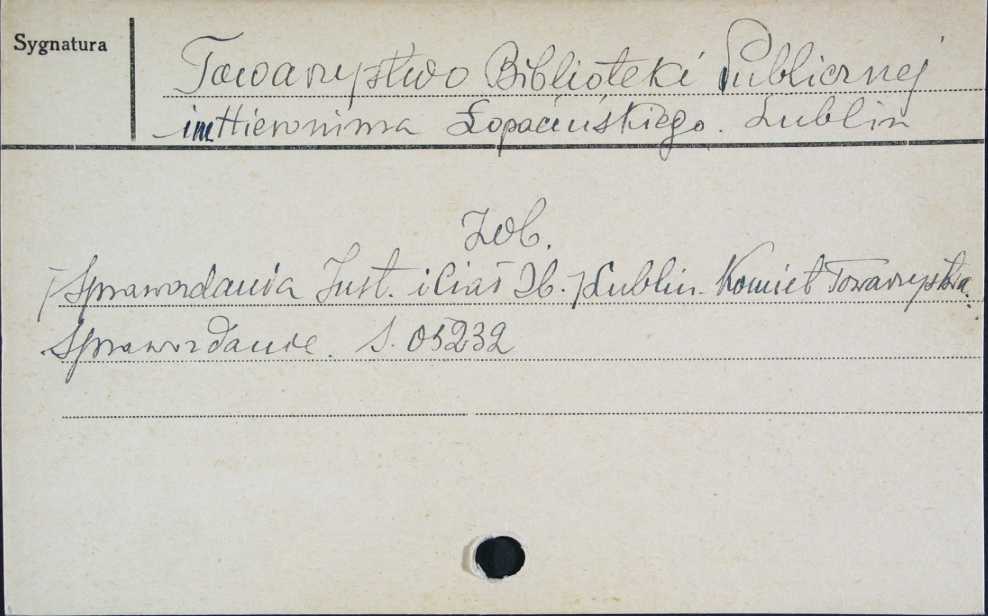 Sygnatura
Towarzystwo Biblioteki Publicznej
im Hieronima Łopacińskiego. Lublin
Zob.
/Sprawozdania Inst. i Ciał Zb./ Lublin. Komitet Towarzystwa.
Sprawozdanie. S. 05232